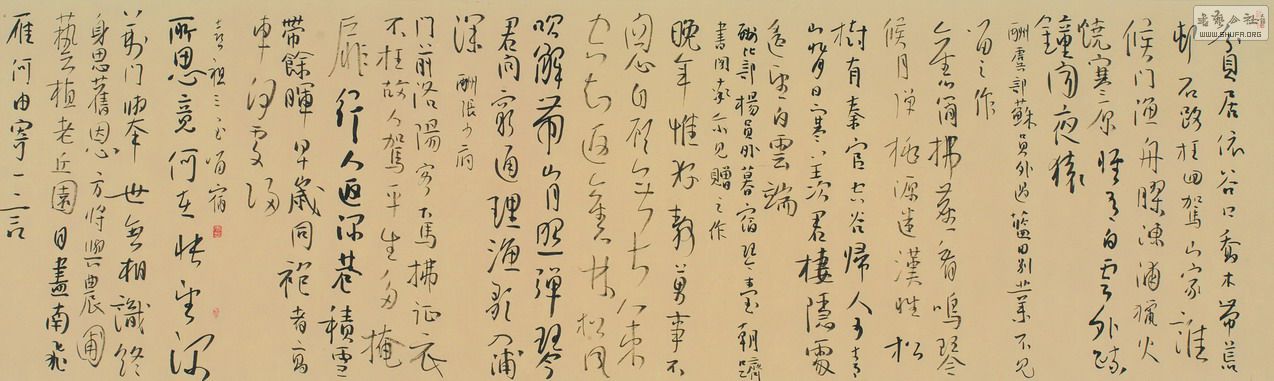 貧居依谷口喬木帶荒
村石路枉回駕山家誰
候門漁舟膠凍浦獵火
燒寒原唯有白雲外疏
鐘聞夜猿
酬虞部蘇員外過藍田別業不見
留之作
舊簡拂塵看鳴琴
候月彈桃源迷漢姓松
樹有秦官空谷歸人少青
山背日寒羨君棲隱處
遙望白雲端
酬比部楊員外暮宿琴臺朝躋
書閣率爾見贈之作
晚年惟好靜萬事不
關心自顧無長策
空知返舊林松風
吹解帶山月照彈琴
君問窮通理漁歌入浦
深 酬張少府
門前洛陽客下馬拂征衣
不枉故人駕平生多掩
扉行人返深巷積雪
帶餘暉早歲同袍者高
車何處歸
喜祖三至留宿
所思竟何在悵望深
荊門舉世無相識終
身思舊恩方將與農圃
藝植老丘園目盡南飛
雁何由寄一言
書法公社
WWW.SHUFA.ORG